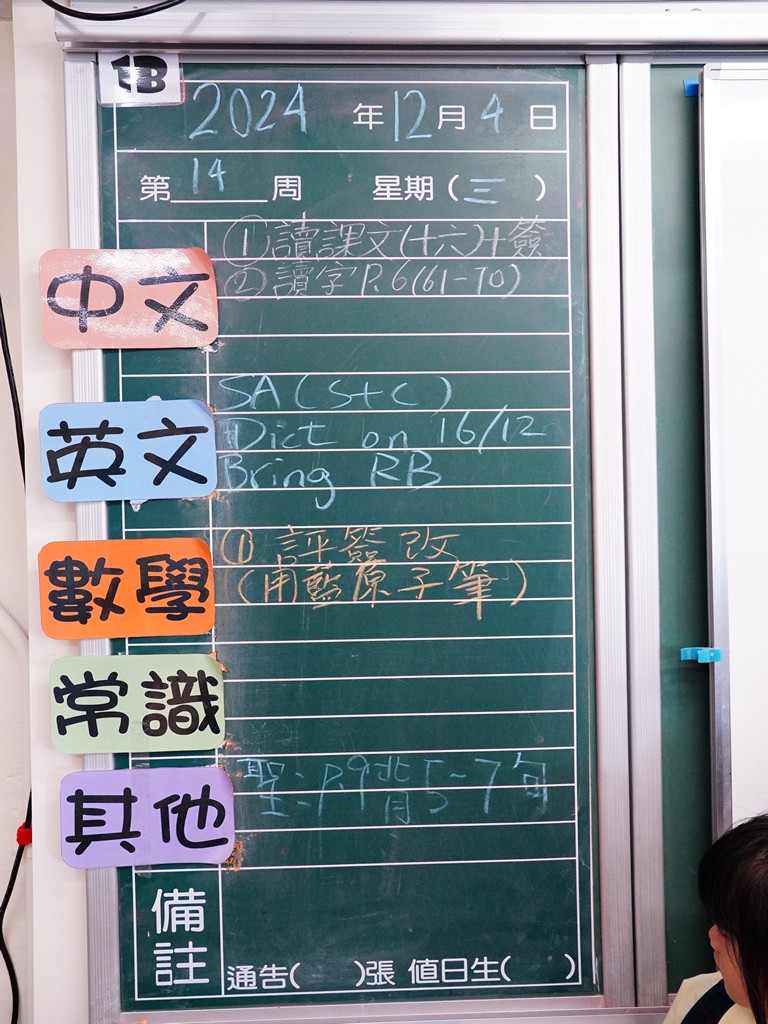 1B
2024 年 12 月 4 日
第 14 周 星期 (三)
中文
①讀課文(十六)+簽
②讀字P.6(61-70)
英文
SA (S+C)
Dict on 16/12
Bring RB
數學
① 評簽改
(用藍原子筆)
常識
其他
聖:P.9背5~7句
備註
通告( )張 值日生( )